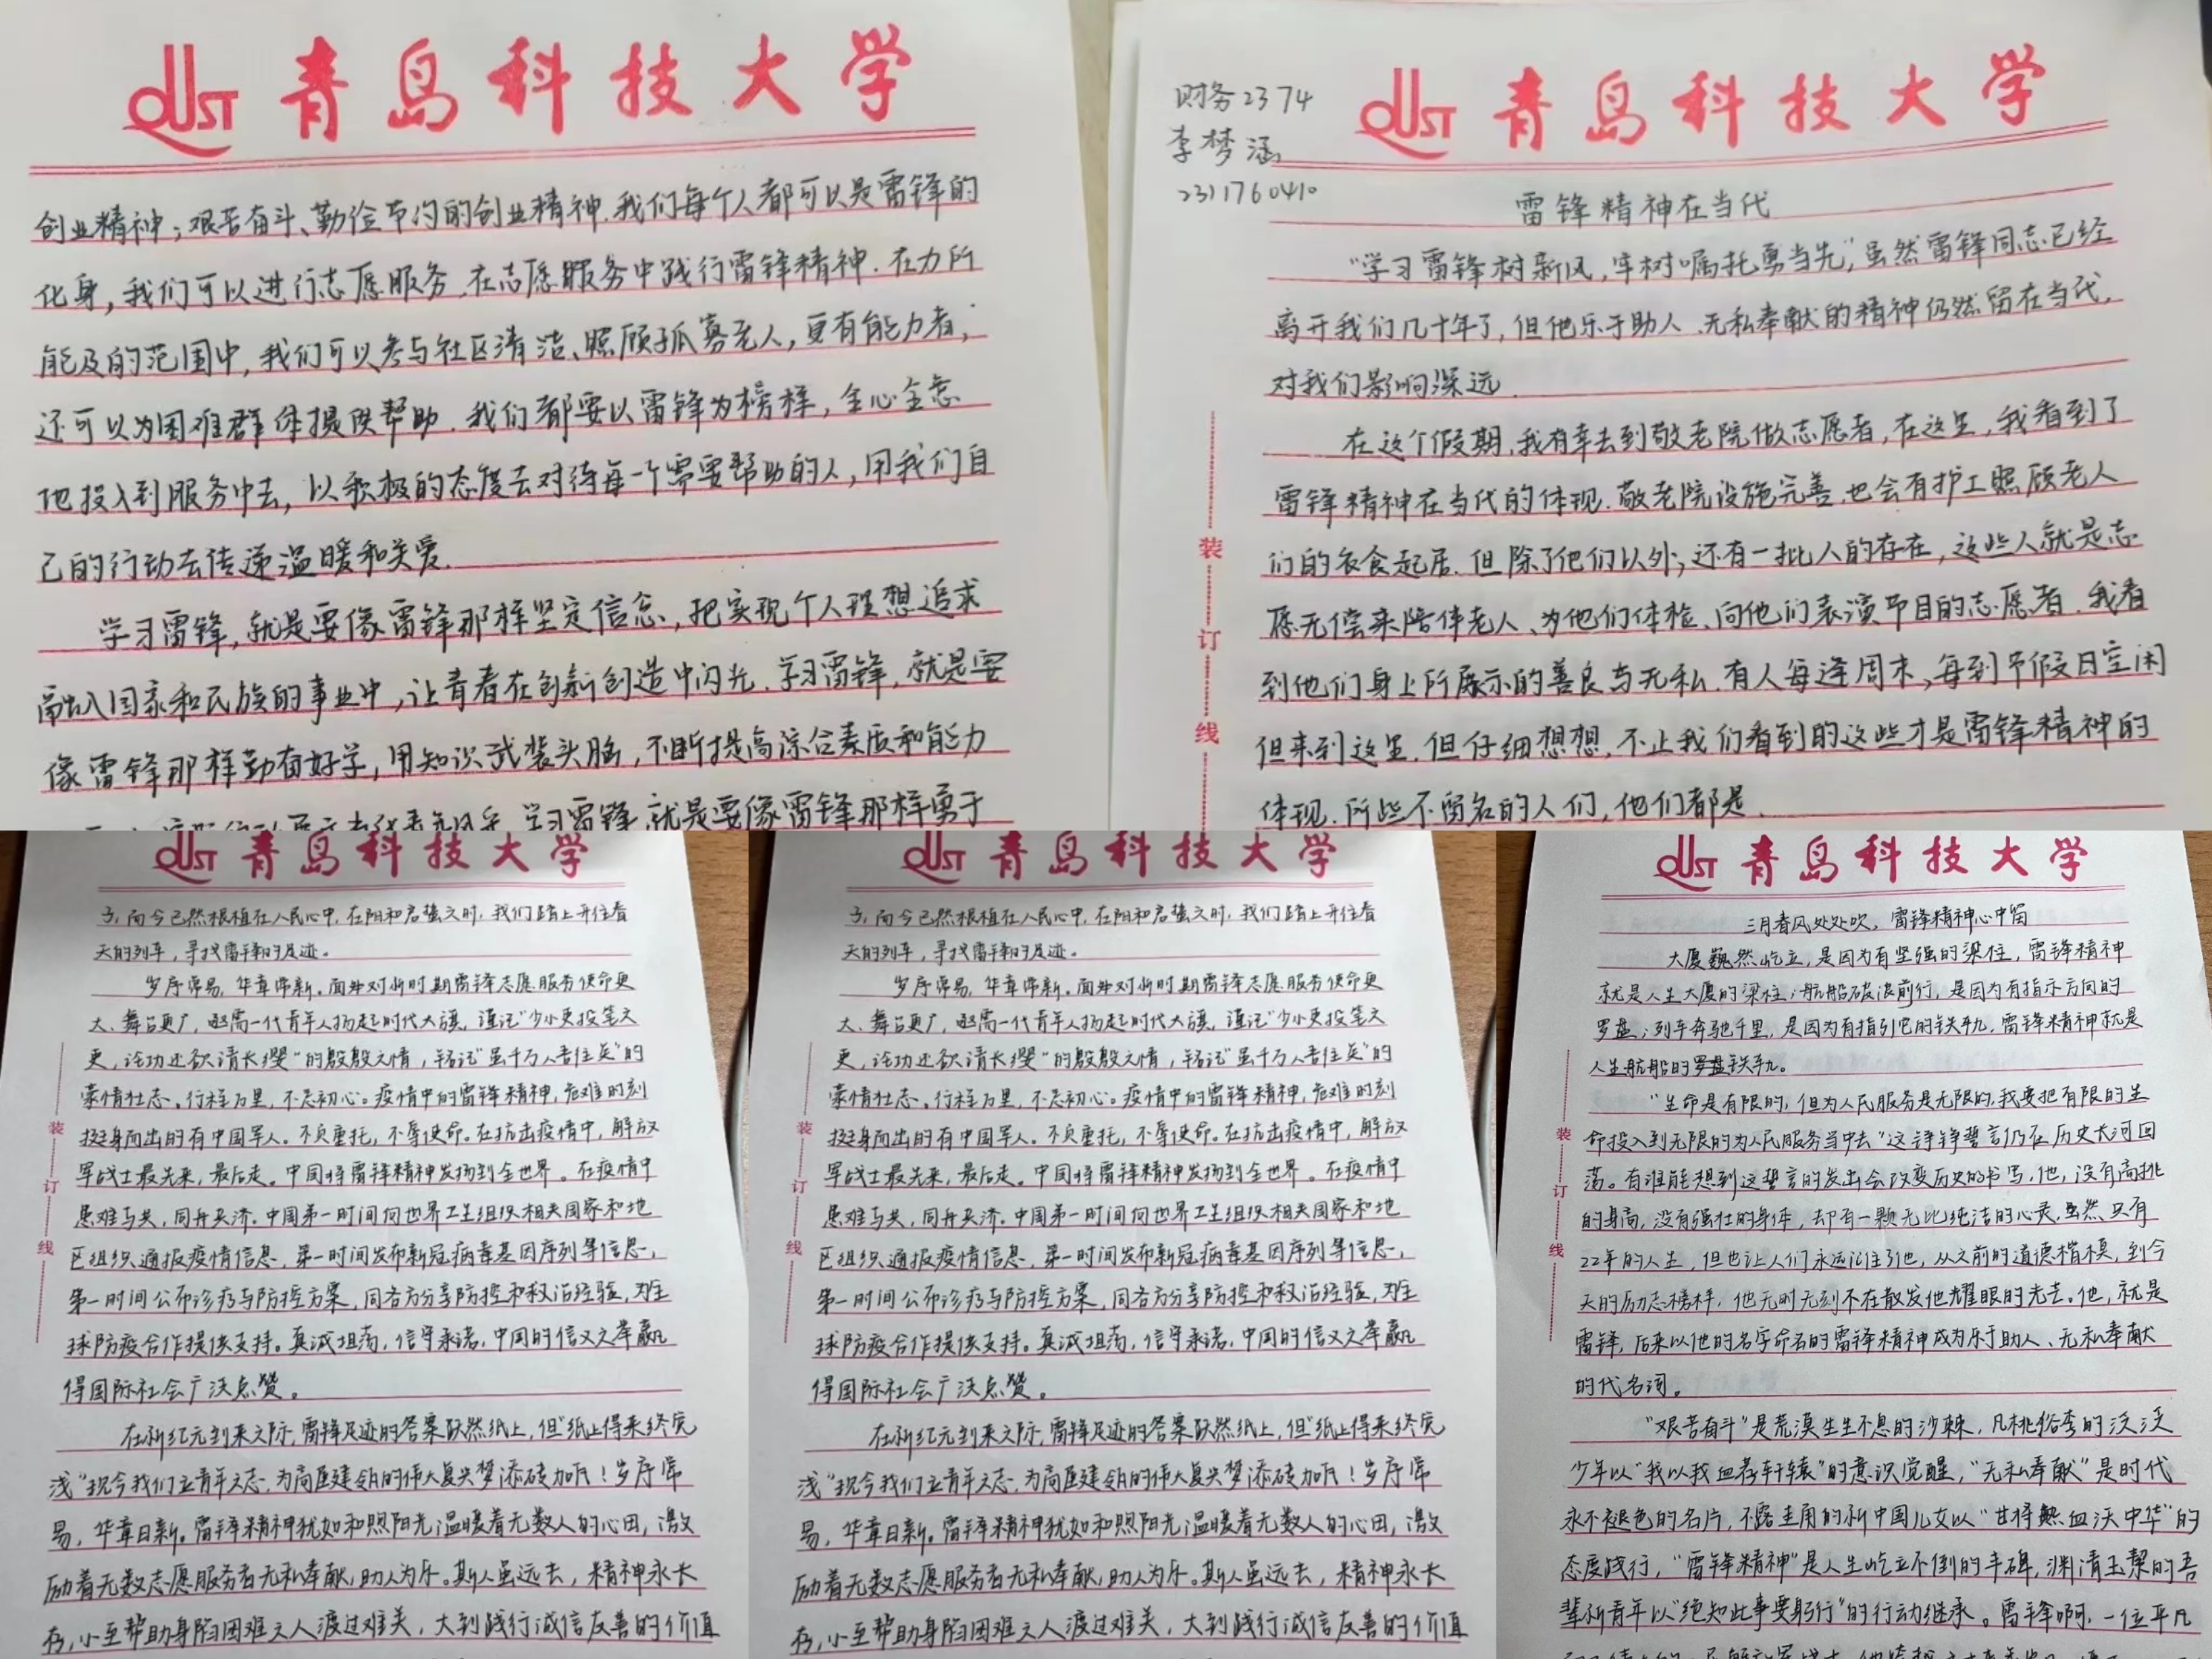 QUST 青岛科技大学
创业精神；艰苦奋斗、勤俭节约的创业精神.我们每个人都可以是雷锋的
化身，我们可以进行志愿服务.在志愿服务中践行雷锋精神.在力所
能及的范围中，我们可以参与社区清洁、照顾孤寡老人，更有能力者，
还可以为困难群体提供帮助.我们都要以雷锋为榜样，全心全意
地投入到服务中去，以积极的态度去对待每一个需要帮助的人，用我们自
己的行动去传递温暖和关爱.
学习雷锋，就是要像雷锋那样坚定信念，把实现个人理想追求
融入国家和民族的事业中，让青春在创新创造中闪光.学习雷锋，就是要
像雷锋那样勤奋好学，用知识武装头脑，不断提高综合素质和能力
学习雷锋，就是要像雷锋那样勇于
财务2374
李梦涵
2311760410
QUST 青岛科技大学
雷锋精神在当代
“学习雷锋树新风，牢树嘱托勇当先”，虽然雷锋同志已经
离开我们几十年了，但他乐于助人、无私奉献的精神仍然留在当代，
对我们影响深远.
在这个假期，我有幸去到敬老院做志愿者，在这里，我看到了
雷锋精神在当代的体现.敬老院设施完善，也会有护工照顾老人
们的衣食起居.但除了他们以外，还有一批人的存在，这些人就是志
愿无偿来陪伴老人、为他们体检、向他们表演节目的志愿者.我看
到他们身上所展示的善良与无私.有人每逢周末、每到节假日空闲
但来到这里.但仔细想想，不止我们看到的这些才是雷锋精神的
体现.所些不留名的人们，他们都是.
装
订
线
QUST 青岛科技大学
子，而今已然根植在人民心中，在阳和启蛰之时，我们踏上开往春
天的列车，寻找雷锋的足迹。
岁序常易，华章常新。面对新时期雷锋志愿服务使命更
大、舞台更广，亟需一代青年人扬起时代大旗，谨记“少小更投笔文
更，论功还欲请长缨”的殷殷之情，铭记“虽千万人吾往矣”的
豪情壮志。行程万里，不忘初心。疫情中的雷锋精神，危难时刻
挺身而出的有中国军人。不负重托，不辱使命。在抗击疫情中，解放
军战士最先来，最后走。中国将雷锋精神发扬到全世界。在疫情中
患难与共，同舟共济。中国第一时间向世界卫生组织相关国家和地
区组织通报疫情信息，第一时间发布新冠病毒基因序列等信息，
第一时间公布诊疗与防控方案，同各方分享防控和救治经验，为全
球防疫合作提供支持。真诚坦荡，信守承诺，中国的信义之举赢
得国际社会广泛点赞。
在新纪元到来之际，雷锋足迹的答案跃然纸上，但“纸上得来终觉
浅”现今我们立青年之志，为高屋建瓴的伟大复兴梦添砖加瓦！岁序常
易，华章日新。雷锋精神犹如和煦阳光温暖着无数人的心田，激
励着无数志愿服务者无私奉献，助人为乐。斯人虽远去，精神永长
存，小至帮助身陷困难之人渡过难关，大到践行诚信友善的价值
装
订
线
QUST 青岛科技大学
子，而今已然根植在人民心中，在阳和启蛰之时，我们踏上开往春
天的列车，寻找雷锋的足迹。
岁序常易，华章常新。面对新时期雷锋志愿服务使命更
大、舞台更广，亟需一代青年人扬起时代大旗，谨记“少小更投笔文
更，论功还欲请长缨”的殷殷之情，铭记“虽千万人吾往矣”的
豪情壮志。行程万里，不忘初心。疫情中的雷锋精神，危难时刻
挺身而出的有中国军人。不负重托，不辱使命。在抗击疫情中，解放
军战士最先来，最后走。中国将雷锋精神发扬到全世界。在疫情中
患难与共，同舟共济。中国第一时间向世界卫生组织相关国家和地
区组织通报疫情信息，第一时间发布新冠病毒基因序列等信息，
第一时间公布诊疗与防控方案，同各方分享防控和救治经验，为全
球防疫合作提供支持。真诚坦荡，信守承诺，中国的信义之举赢
得国际社会广泛点赞。
在新纪元到来之际，雷锋足迹的答案跃然纸上，但“纸上得来终觉
浅”现今我们立青年之志，为高屋建瓴的伟大复兴梦添砖加瓦！岁序常
易，华章日新。雷锋精神犹如和煦阳光温暖着无数人的心田，激
励着无数志愿服务者无私奉献，助人为乐。斯人虽远去，精神永长
存，小至帮助身陷困难之人渡过难关，大到践行诚信友善的价值
装
订
线
QUST 青岛科技大学
三月春风处处吹，雷锋精神心中留
大厦巍然屹立，是因为有坚强的梁柱，雷锋精神
就是人生大厦的梁柱；航船破浪前行，是因为有指示方向的
罗盘；列车奔驰千里，是因为有指引它的铁轨，雷锋精神就是
人生航船的罗盘铁轨。
“生命是有限的，但为人民服务是无限的，我要把有限的生
命投入到无限的为人民服务当中去”这铮铮誓言仍在历史长河回
荡。有谁能想到这誓言的发出会改变历史的书写，他，没有高挑
的身高，没有强壮的身体，却有一颗无比纯洁的心灵，虽然只有
22年的人生，但也让人们永远记住了他，从之前的道德楷模，到今
天的励志榜样，他无时无刻不在散发他耀眼的光芒。他，就是
雷锋，后来以他的名字命名的雷锋精神成为乐于助人、无私奉献
的代名词。
“艰苦奋斗”是荒漠生生不息的沙棘，凡桃俗李的泛泛
少年以“我以我血荐轩辕”的意识觉醒，“无私奉献”是时代
永不褪色的名片，不露圭角的新中国儿女以“甘将热血沃中华”的
态度践行，“雷锋精神”是人生屹立不倒的丰碑，渊清玉絜的吾
辈新青年以“绝知此事要躬行”的行动继承。雷锋啊，一位平凡